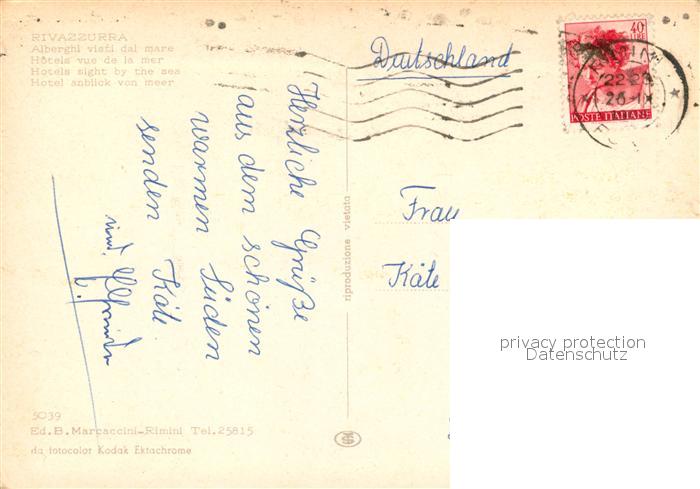 RIVAZZURRA
Alberghi visti dal mare
Hôtels vue de la mer
Hotels sight by the sea
Hotel anblick von meer
Deutschland
40
LIRE
POSTE ITALIANE
22-23
26-IX
Herzliche Grüße
aus dem schönen
warmen Süden
senden Käte
und
riproduzione vietata
Frau
Käte
privacy protection
Datenschutz
5039
Ed.B.Marcaccini-Rimini Tel.25815
da fotocolor Kodak Ektachrome